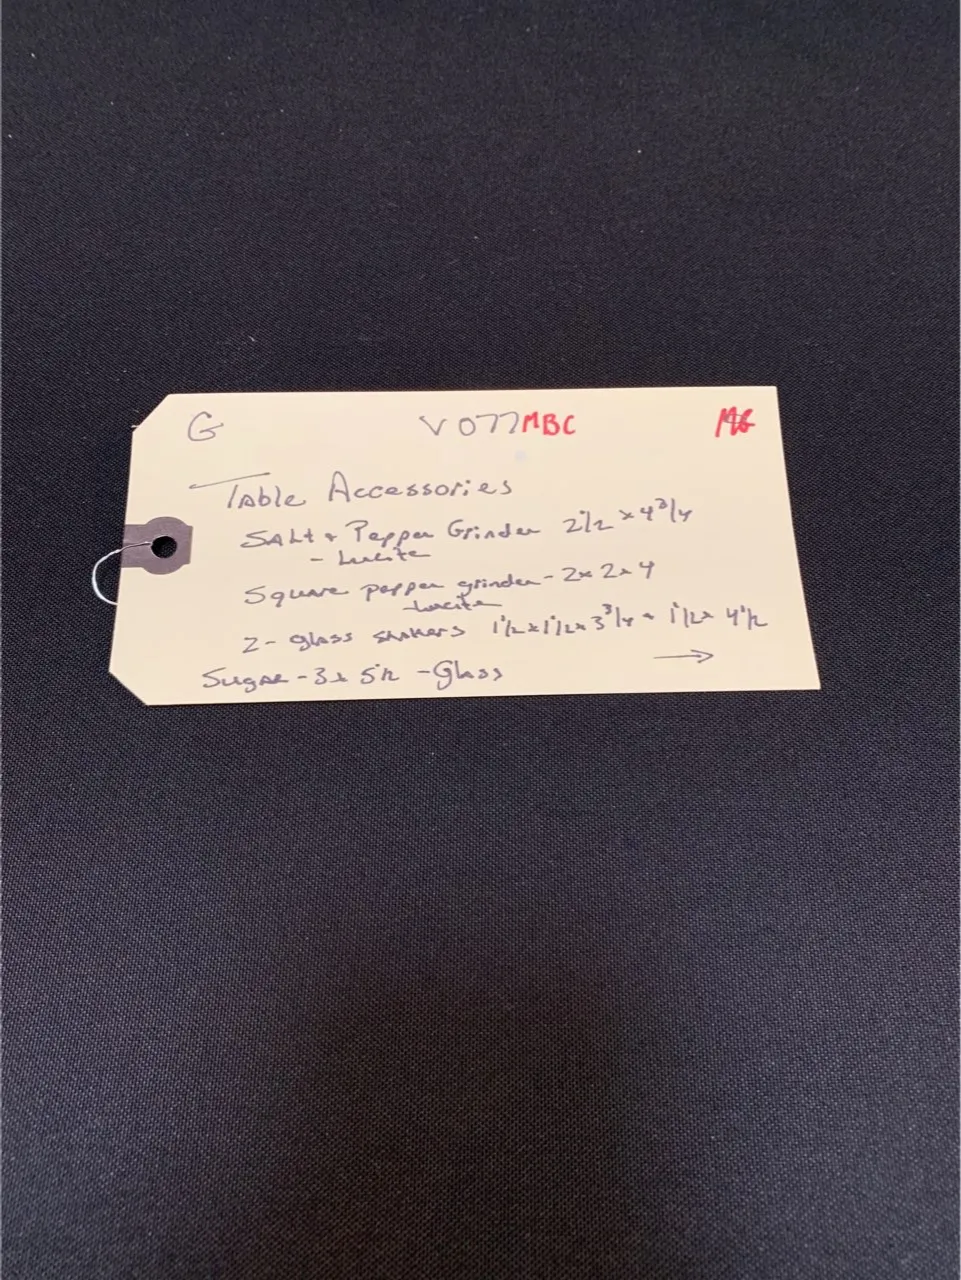 G V077MBC
Table Accessories
Salt + Pepper Grinder 2 1/2 x 4 3/4
- Lucite
Square pepper grinder - 2x2x4
- Lucite
2 - glass shakers 1 1/2 x 1 1/2 x 3 3/4 + 1 1/2 x 4 1/2
Sugar - 3x 5 1/2 - Glass →